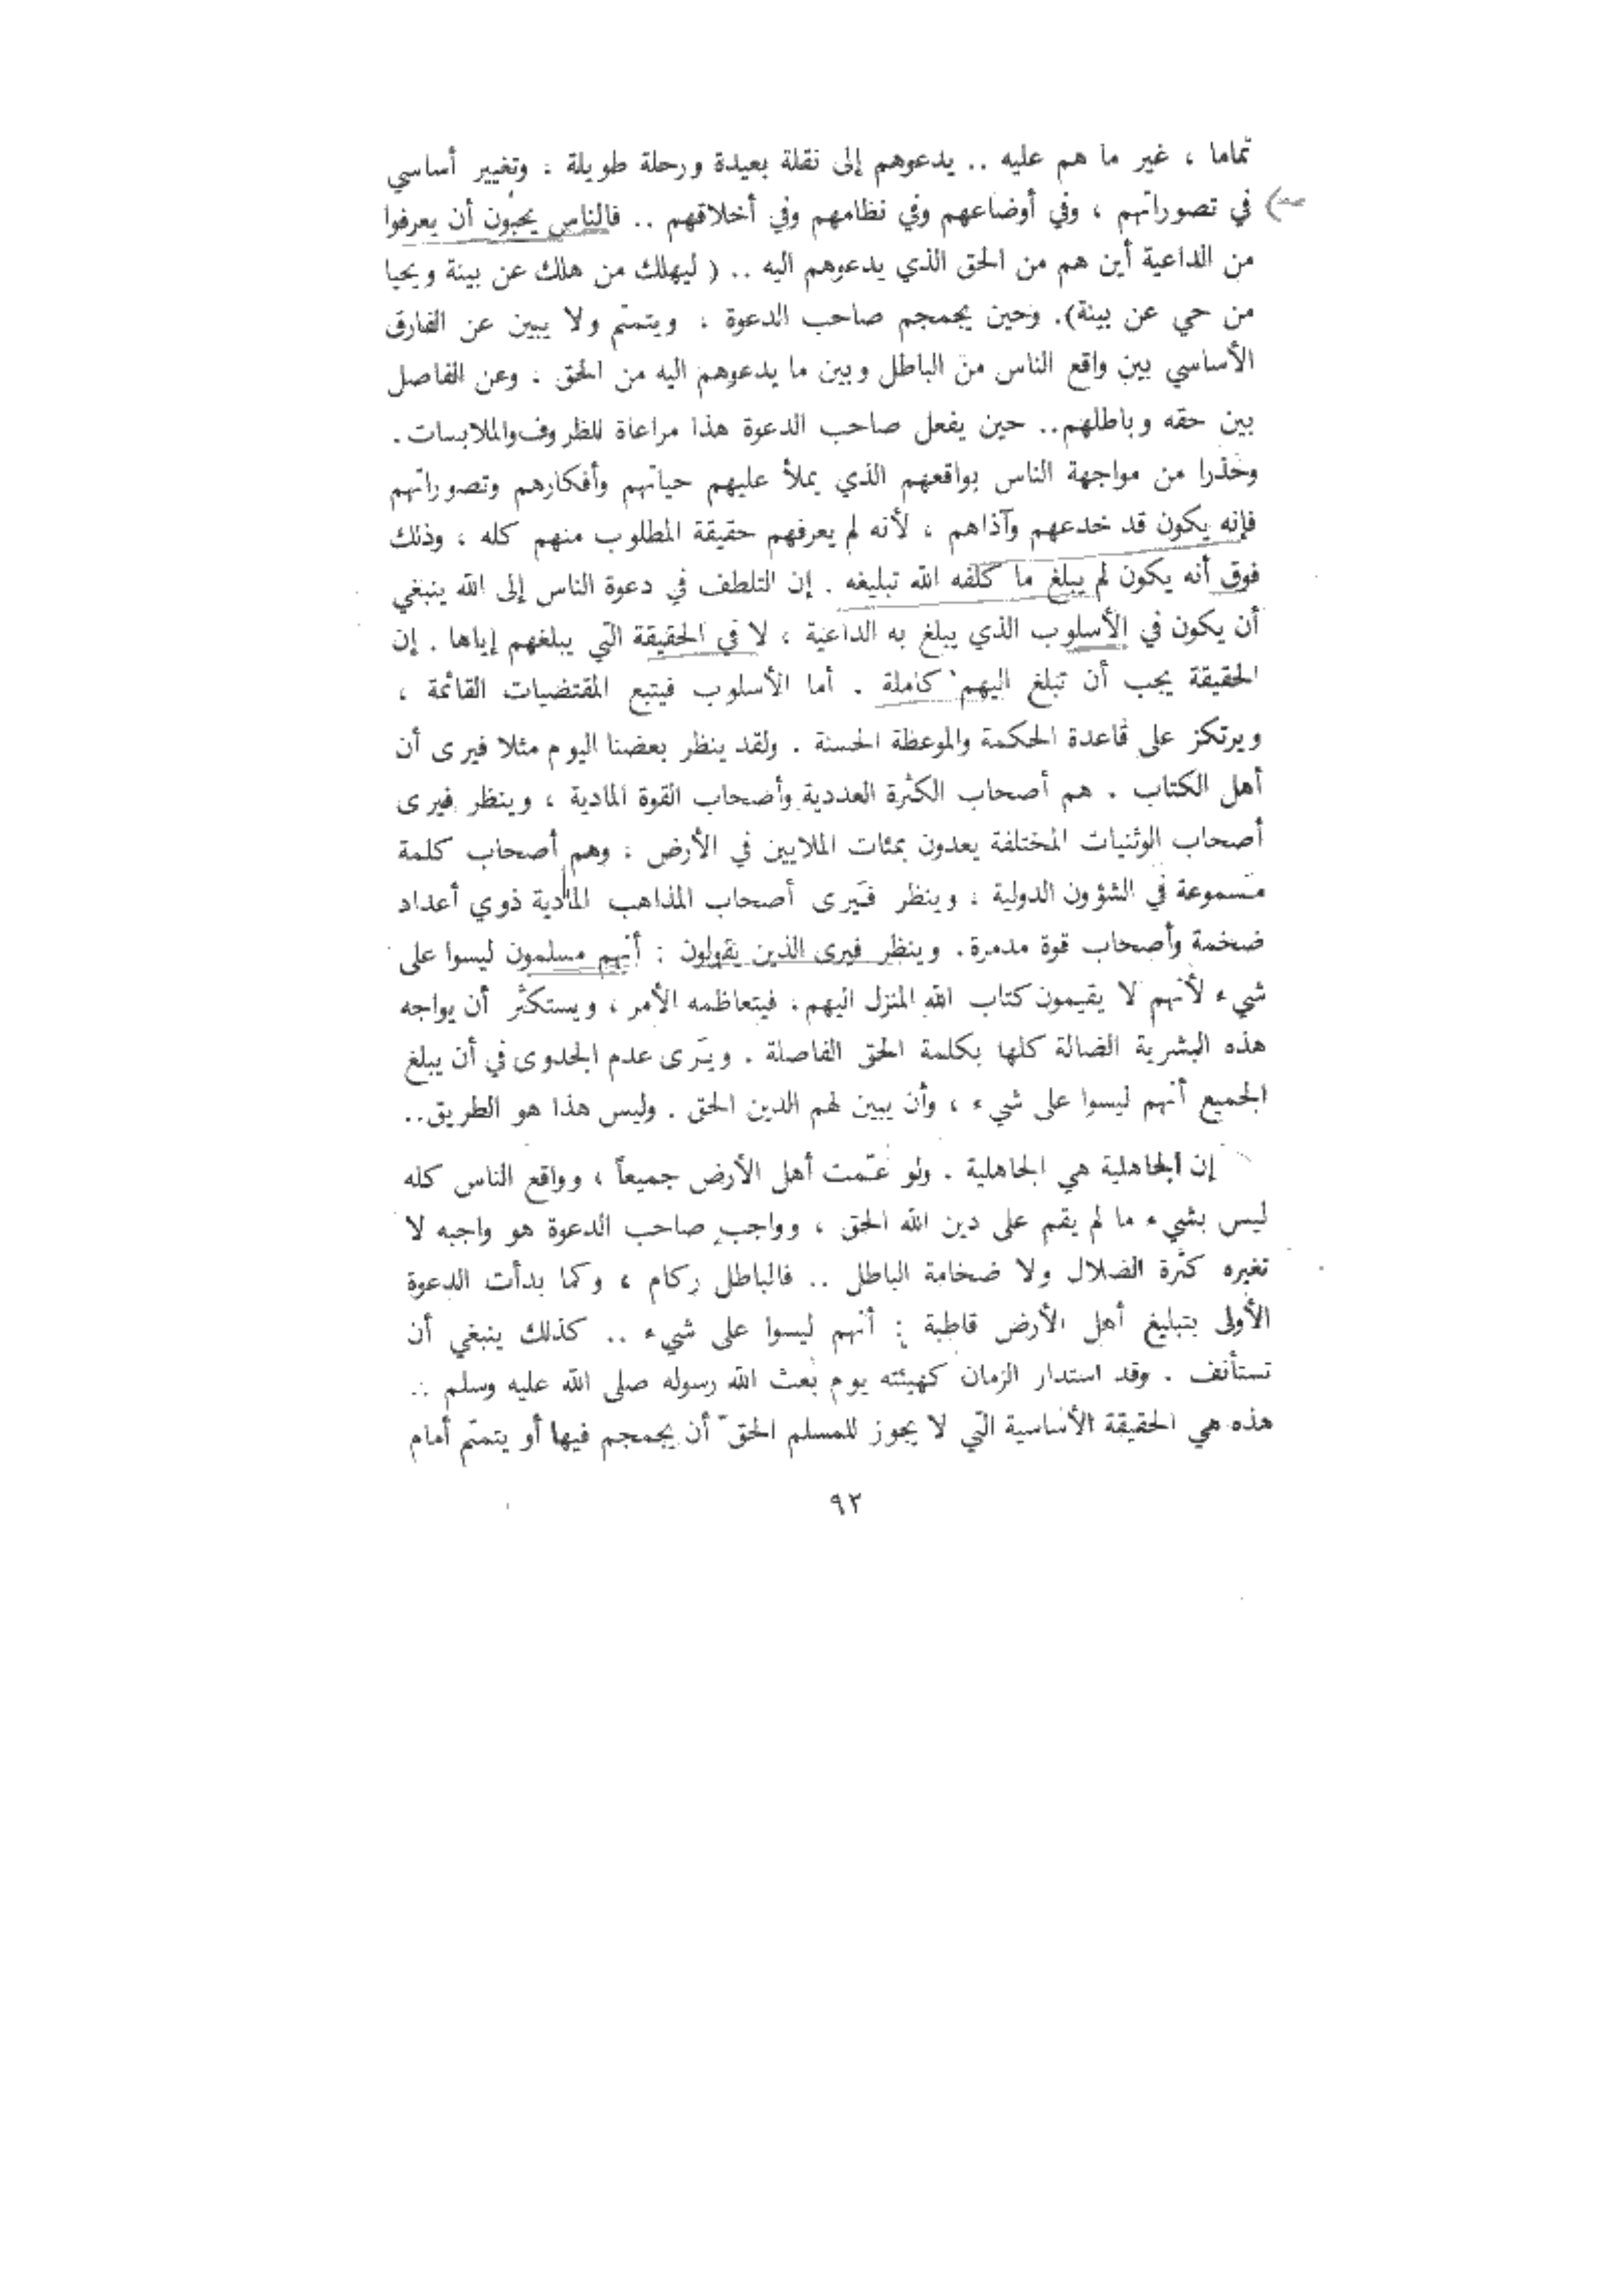 تماما ، غير ما هم عليه .. يدعوهم إلى نقلة بعيدة ورحلة طويلة ، وتغيير أساسي
في تصوراتهم ، وفي أوضاعهم وفي نظامهم وفي أخلاقهم .. فالناس يحبون أن يعرفوا
من الداعية أين هم من الحق الذي يدعوهم اليه .. ( ليهلك من هلك عن بينة ويحيا
من حي عن بينة). وحين يجمجم صاحب الدعوة ، ويتمتم ولا يبين عن الفارق
الأساسي بين واقع الناس من الباطل وبين ما يدعوهم اليه من الحق ، وعن الفاصل
بين حقه وباطلهم.. حين يفعل صاحب الدعوة هذا مراعاة للظروف والملابسات .
وحذرا من مواجهة الناس بواقعهم الذي يملأ عليهم حياتهم وأفكارهم وتصوراتهم
فإنه يكون قد خدعهم وآذاهم ، لأنه لم يعرفهم حقيقة المطلوب منهم كله ، وذلك
فوق أنه يكون لم يبلغ ما كلفه الله تبليغه . إن التلطف في دعوة الناس إلى الله ينبغي
أن يكون في الأسلوب الذي يبلغ به الداعية ، لا في الحقيقة التي يبلغهم إياها . إن
الحقيقة يجب أن تبلغ اليهم كاملة . أما الأسلوب فيتبع المقتضيات القائمة ،
ويرتكز على قاعدة الحكمة والموعظة الحسنة . ولقد ينظر بعضنا اليوم مثلا فيرى أن
أهل الكتاب . هم أصحاب الكثرة العددية وأصحاب القوة المادية ، وينظر فيرى
أصحاب الوثنيات المختلفة يعدون بمئات الملايين في الأرض ، وهم أصحاب كلمة
مسموعة في الشؤون الدولية ، وينظر فيرى أصحاب المذاهب المادية ذوي أعداد
ضخمة وأصحاب قوة مدمرة . وينظر فيرى الذين يقولون : أنهم مسلمون ليسوا على
شيء لأنهم لا يقيمون كتاب الله المنزل اليهم ، فيتعاظمه الأمر ، ويستكثر أن يواجه
هذه البشرية الضالة كلها بكلمة الحق الفاصلة . ويرى عدم الجدوى في أن يبلغ
الجميع أنهم ليسوا على شيء ، وأن يبين لهم الدين الحق . وليس هذا هو الطريق..
إن الجاهلية هي الجاهلية . ولو عمّت أهل الأرض جميعاً ، وواقع الناس كله
ليس بشيء ما لم يقم على دين الله الحق ، وواجب صاحب الدعوة هو واجبه لا
تغيره كثرة الضلال ولا ضخامة الباطل .. فالباطل ركام ، وكما بدأت الدعوة
الأولى بتبليغ أهل الأرض قاطبة : أنهم ليسوا على شيء .. كذلك ينبغي أن
تستأنف . وقد استدار الزمان كهيئته يوم بعث الله رسوله صلى الله عليه وسلم ..
هذه هي الحقيقة الأساسية التي لا يجوز للمسلم الحق أن يجمجم فيها أو يتمتم أمام
٩٢